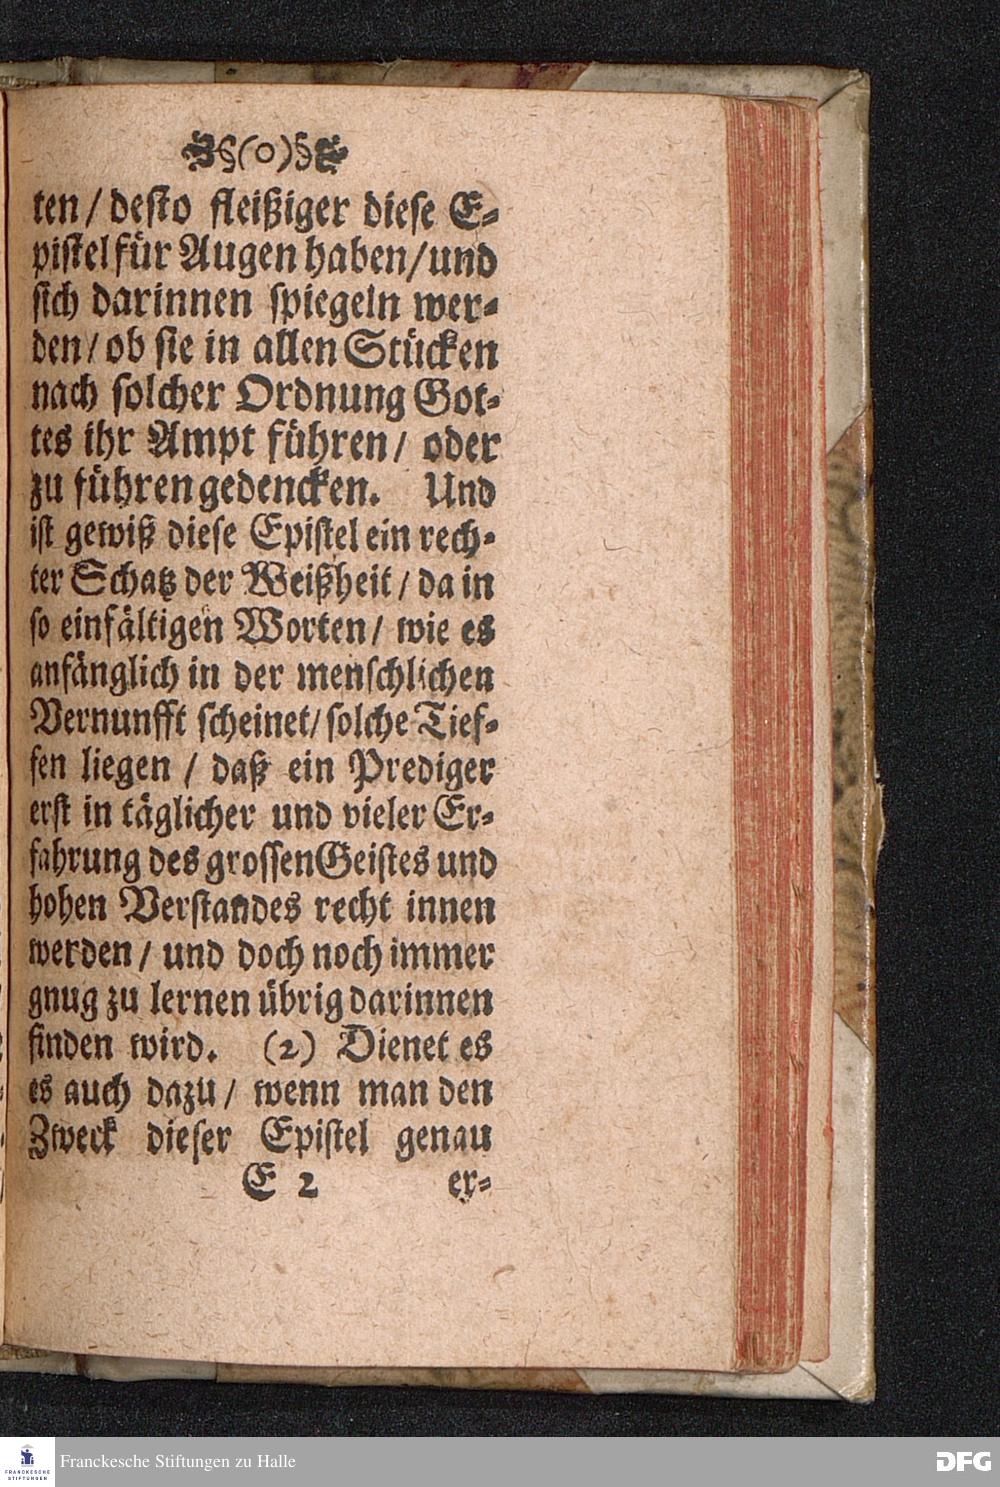 §(o)§
ten/ desto fleißiger diese E-
pistel für Augen haben/ und
sich darinnen spiegeln wer-
den/ ob sie in allen Stücken
nach solcher Ordnung Got-
tes ihr Ampt führen/ oder
zu führen gedencken. Und
ist gewiß diese Epistel ein rech-
ter Schatz der Weißheit/ da in
so einfältigen Worten/ wie es
anfänglich in der menschlichen
Vernunfft scheinet/ solche Tief-
fen liegen / daß ein Prediger
erst in täglicher und vieler Er-
fahrung des grossen Geistes und
hohen Verstandes recht innen
werden/ und doch noch immer
gnug zu lernen übrig darinnen
finden wird. (2) Dienet es
es auch dazu/ wenn man den
Zweck dieser Epistel genau
E 2 er-
FRANCKESCHE
STIFTUNGEN
Franckesche Stiftungen zu Halle
DFG